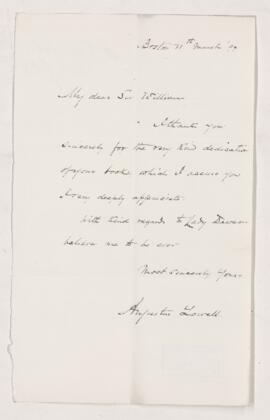 Boston 11th March '89
My dear Sir William
I thank you
sincerely for the very kind dedication
of your book, which I assure you
I very deeply appreciate.
With kind regards to Lady Dawson
believe me to be ever
Most sincerely Yours
Augustus Lowell.